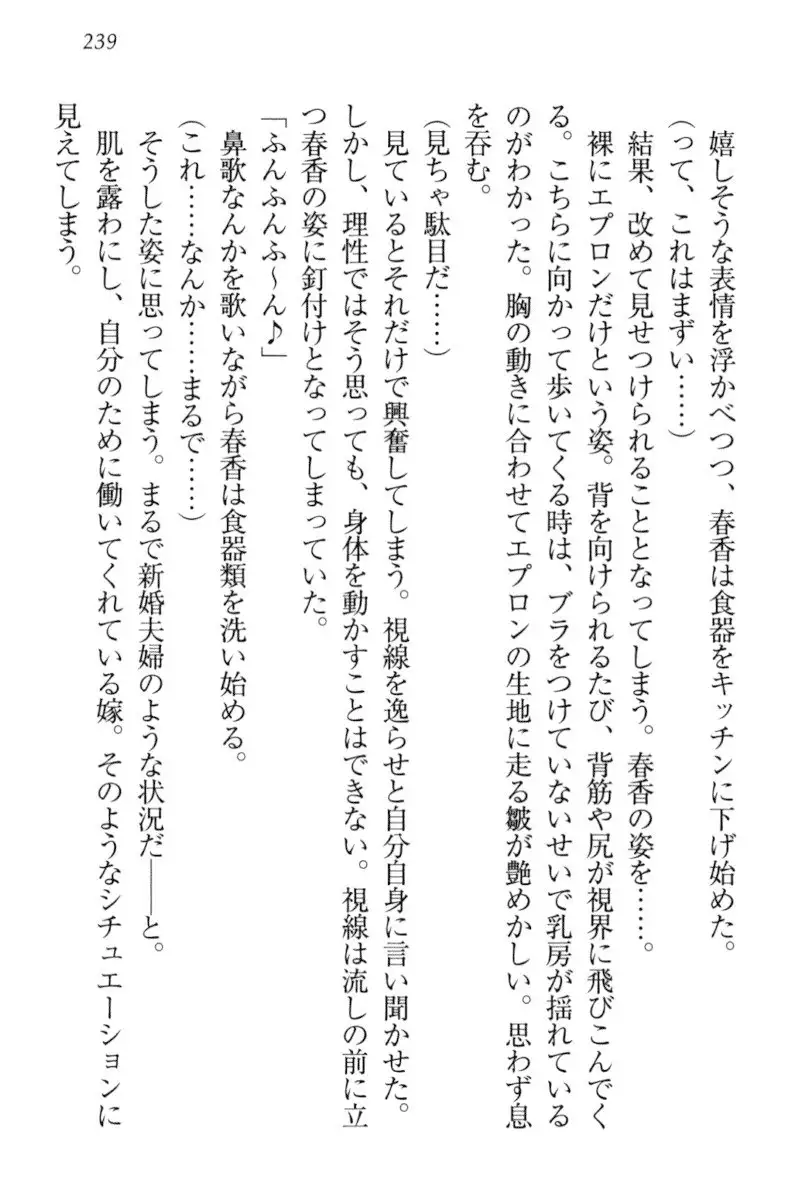 239
嬉しそうな表情を浮かべつつ、春香は食器をキッチンに下げ始めた。
（って、これはまずい……）
結果、改めて見せつけられることとなってしまう。春香の姿を……。
裸にエプロンだけという姿。背を向けられるたび、背筋や尻が視界に飛びこんでく
る。こちらに向かって歩いてくる時は、ブラをつけていないせいで乳房が揺れている
のがわかった。胸の動きに合わせてエプロンの生地に走る皺が艶めかしい。思わず息
を呑む。
（見ちゃ駄目だ……）
見ているとそれだけで興奮してしまう。視線を逸らせと自分自身に言い聞かせた。
しかし、理性ではそう思っても、身体を動かすことはできない。視線は流しの前に立
つ春香の姿に釘付けとなってしまっていた。
「ふんふんふ～ん♪」
鼻歌なんかを歌いながら春香は食器類を洗い始める。
（これ……なんか……まるで……）
そうした姿に思ってしまう。まるで新婚夫婦のような状況だ――と。
肌を露わにし、自分のために働いてくれている嫁。そのようなシチュエーションに
見えてしまう。